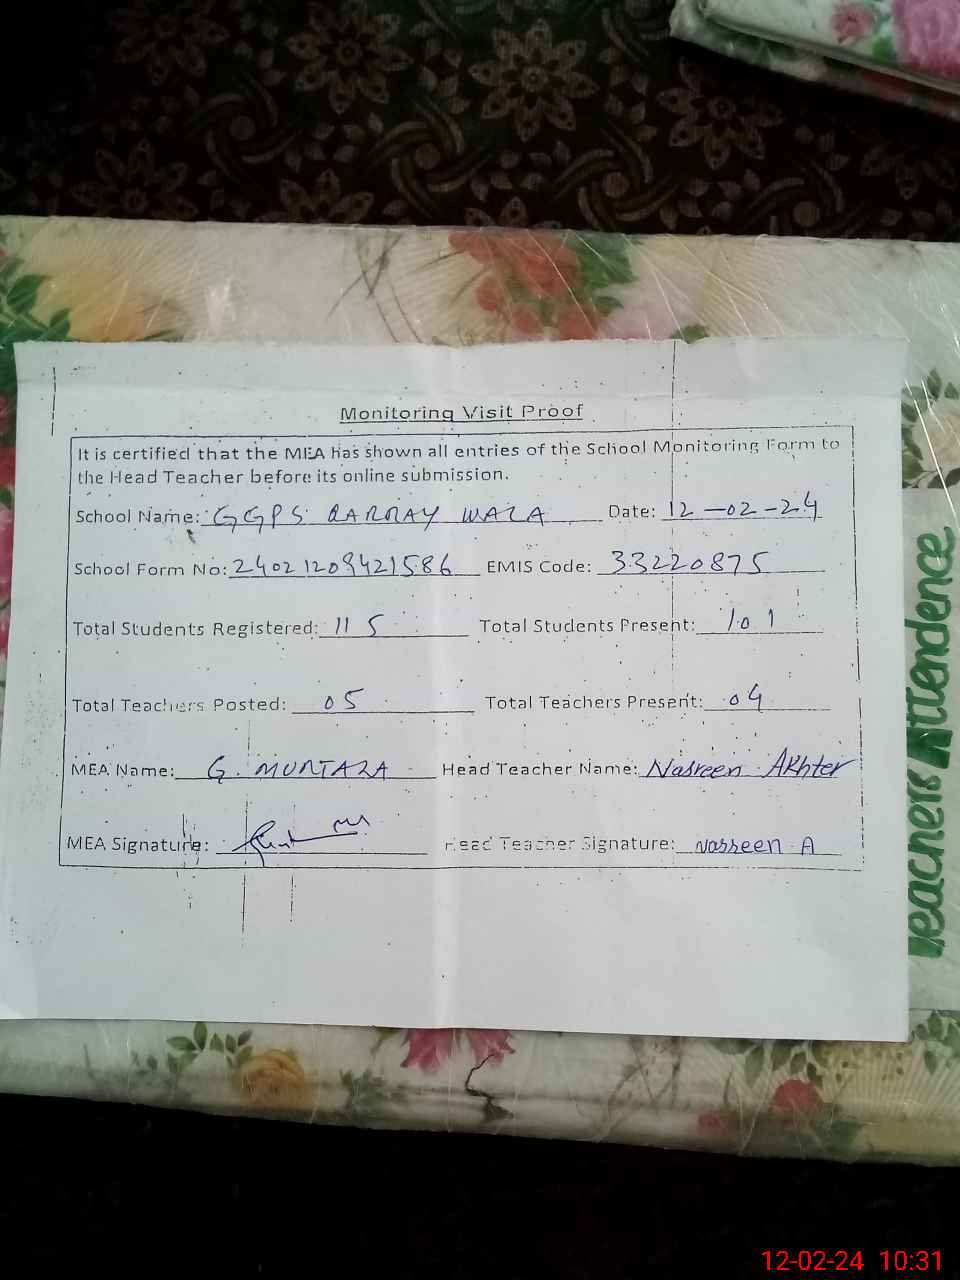 Monitoring Visit Proof
It is certified that the MEA has shown all entries of the School Monitoring Form to
the Head Teacher before its online submission.
School Name: GGPS WALA Date: 12-02-24
School Form No: 24021209421586 EMIS Code: 33220875
Total Students Registered: 115 Total Students Present: 101
Total Teachers Posted: 05 Total Teachers Present: 04
MEA Name: G. MURTAZA Head Teacher Name: Nasreen Akhter
MEA Signature: Head Teacher Signature: Nasreen A
Teachers Attendence
12-02-24 10:31